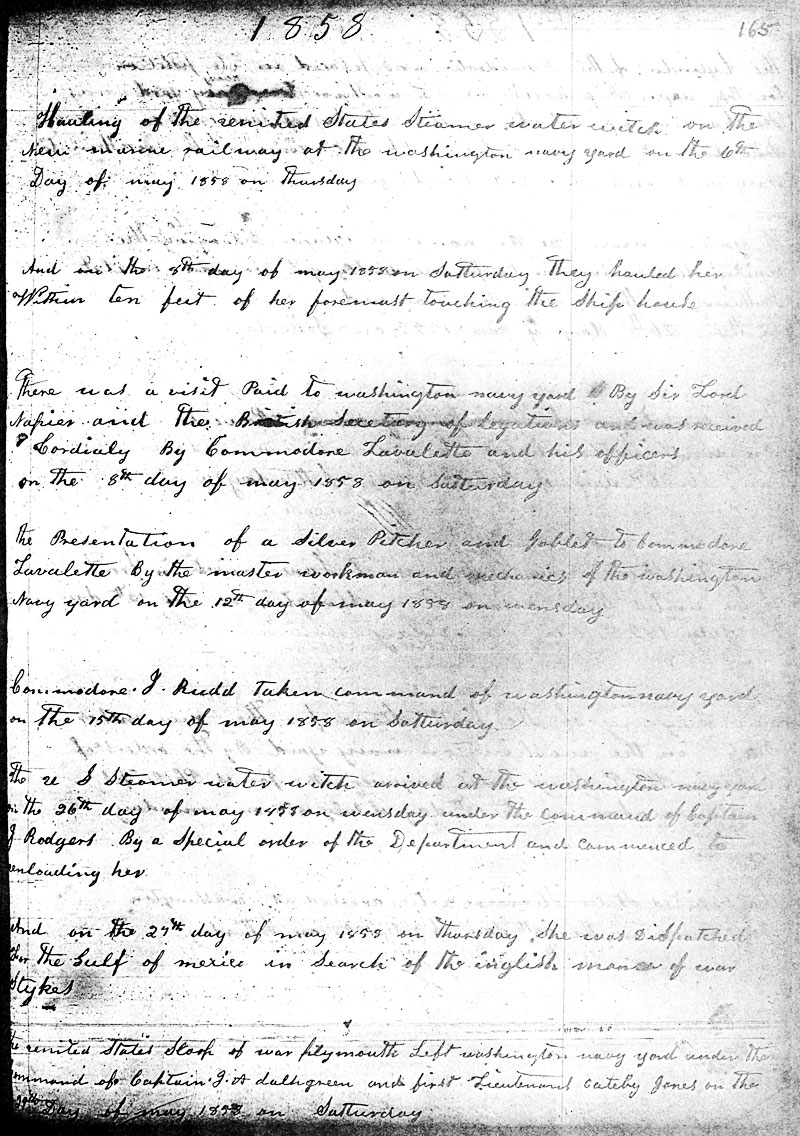 1858
165
Hauling of the reunited States Steamer water witch on the
New marine railway at the washington navy yard on the 6th
Day of may 1858 on thursday
And on the 8th day of may 1858 on Satturday They hauled her
Within ten feet of her foremast touching the Ship house
There was a visit Paid to washington navy yard By Sir Lord
Napier and the British Secetary of Legations and was received
Cordialy By Commodore Lavalette and his officers
on the 8th day of may 1858 on Satturday
the Presentation of a Silver Pitcher and Goblet to Commodore
Lavalette By the master workman and mechanics of the washington
Navy yard on the 12th day of may 1858 on wensday
Commodore J. Rudd taken command of washington navy yard
on the 15th day of may 1858 on Satturday
the u S Steamer water witch arrived at the washington navy yard
on the 26th day of may 1858 on wensday under the command of Captain
J Rodgers By a Special order of the Department and commenced to
enloading her
And on the 27th day of may 1858 on thursday She was Dispatched
For the Gulf of mexico in Search of the inglish man of war
Stykes
the united States Sloop of war plymouth Left washington navy yard under the
command of Captain J. A dalhgreen and first Lieutenant Cateby Jones on the
Day of may 1858 on Satturday